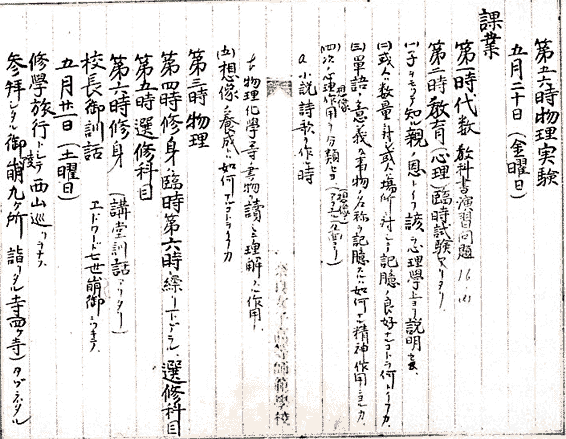 第五六時物理実験
五月二十日(金曜日)
課業
第一時代数 教科書演習問題 16
第二時教育(心理)臨時試験アリタリ
(一)子ヲモツテ知親ノ恩トイフ諺ヲ心理學上ヨリ説明セヨ
(二)或人ハ数量ニ対シ或人ハ場所ニ対シテ記臆ノ良好ナルコトヲ何トイフカ
(三)單語ノ意義ヤ事物ノ名称ヲ記臆スルハ如何ナル精神作用ニヨルカ
(四)次ノ心理作用ヲ分類セヨ
想像
a 小説詩歌ヲ作ル時
b 物理化學等ノ書物ヲ讀ミテ理解スル作用
(五)想像ノ養成ハ如何ニスベキカ
第三時物理
第四時修身臨時第六時繰リ上ゲラル、選修科目
第五時選修科目
第六時修身(講堂訓話アリタリ)
校長御訓話 エドワード七世崩御ニツキテ
五月廿一日(土曜日)
修學旅行 西山巡リヲナス
参拝シタル御崩九ヶ所 詣リタル寺四ヶ寺